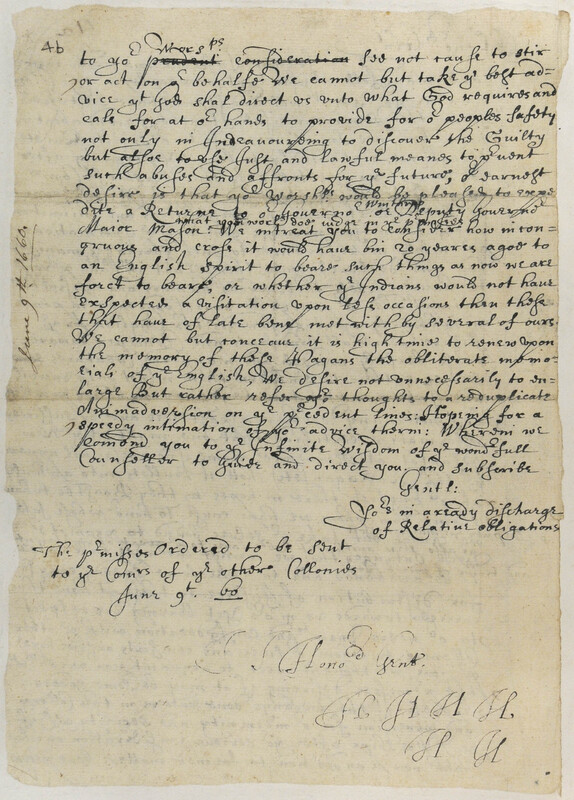 4b
Worsps
to yor prudent consideration see not cause to stir
or act on yr behalfe. We cannot but take ye best ad-
vice yt God shal direct us vnto what God requires and
cals for at or hands to provide for or peoples safety
not only in Indeavoureing to discover the Guilty
but alsoe to vse Just and lawful means to pruent
such abuses and affronts for ye future; or earnest
desire is that yor Worshps would be pleased to expe
dite a Returne to or Gouernor Winthrop or Deputy Gouernor
Major Mason what yor worsps Doe in ye prmises
We intreat you to Consider how incon-
gruous and cross it would haue bin 20 yeares agoe to
an English spirit to beare such things as now we are
forct to beare, or whether ye Indians would not haue
Exspected a visitation upon less occasions then these
that haue of late bene met with by several of ours
We cannot but conceaue it is high time to renew upon
the memory of these Pagans the obliterate memo-
rials of ye English, We desire not unnecessarily to en-
large But rather refer yor thoughts to a reduplicate
Animadversion on ye prcedent lines: Hopeing for a
speedy intimation of yor advice therin: Wherein we
comend you to ye Infinite wisdom of ye wonderfull
Counseller to guide and direct you, and subscribe
Gentl:
Yors in a ready discharge
of Relative obligations
The prmisses Ordered to be sent
to ye Comrs of ye other Collonies
June 9t. 60
Honod Gent.
H H H
H H
June 9th. 1660.